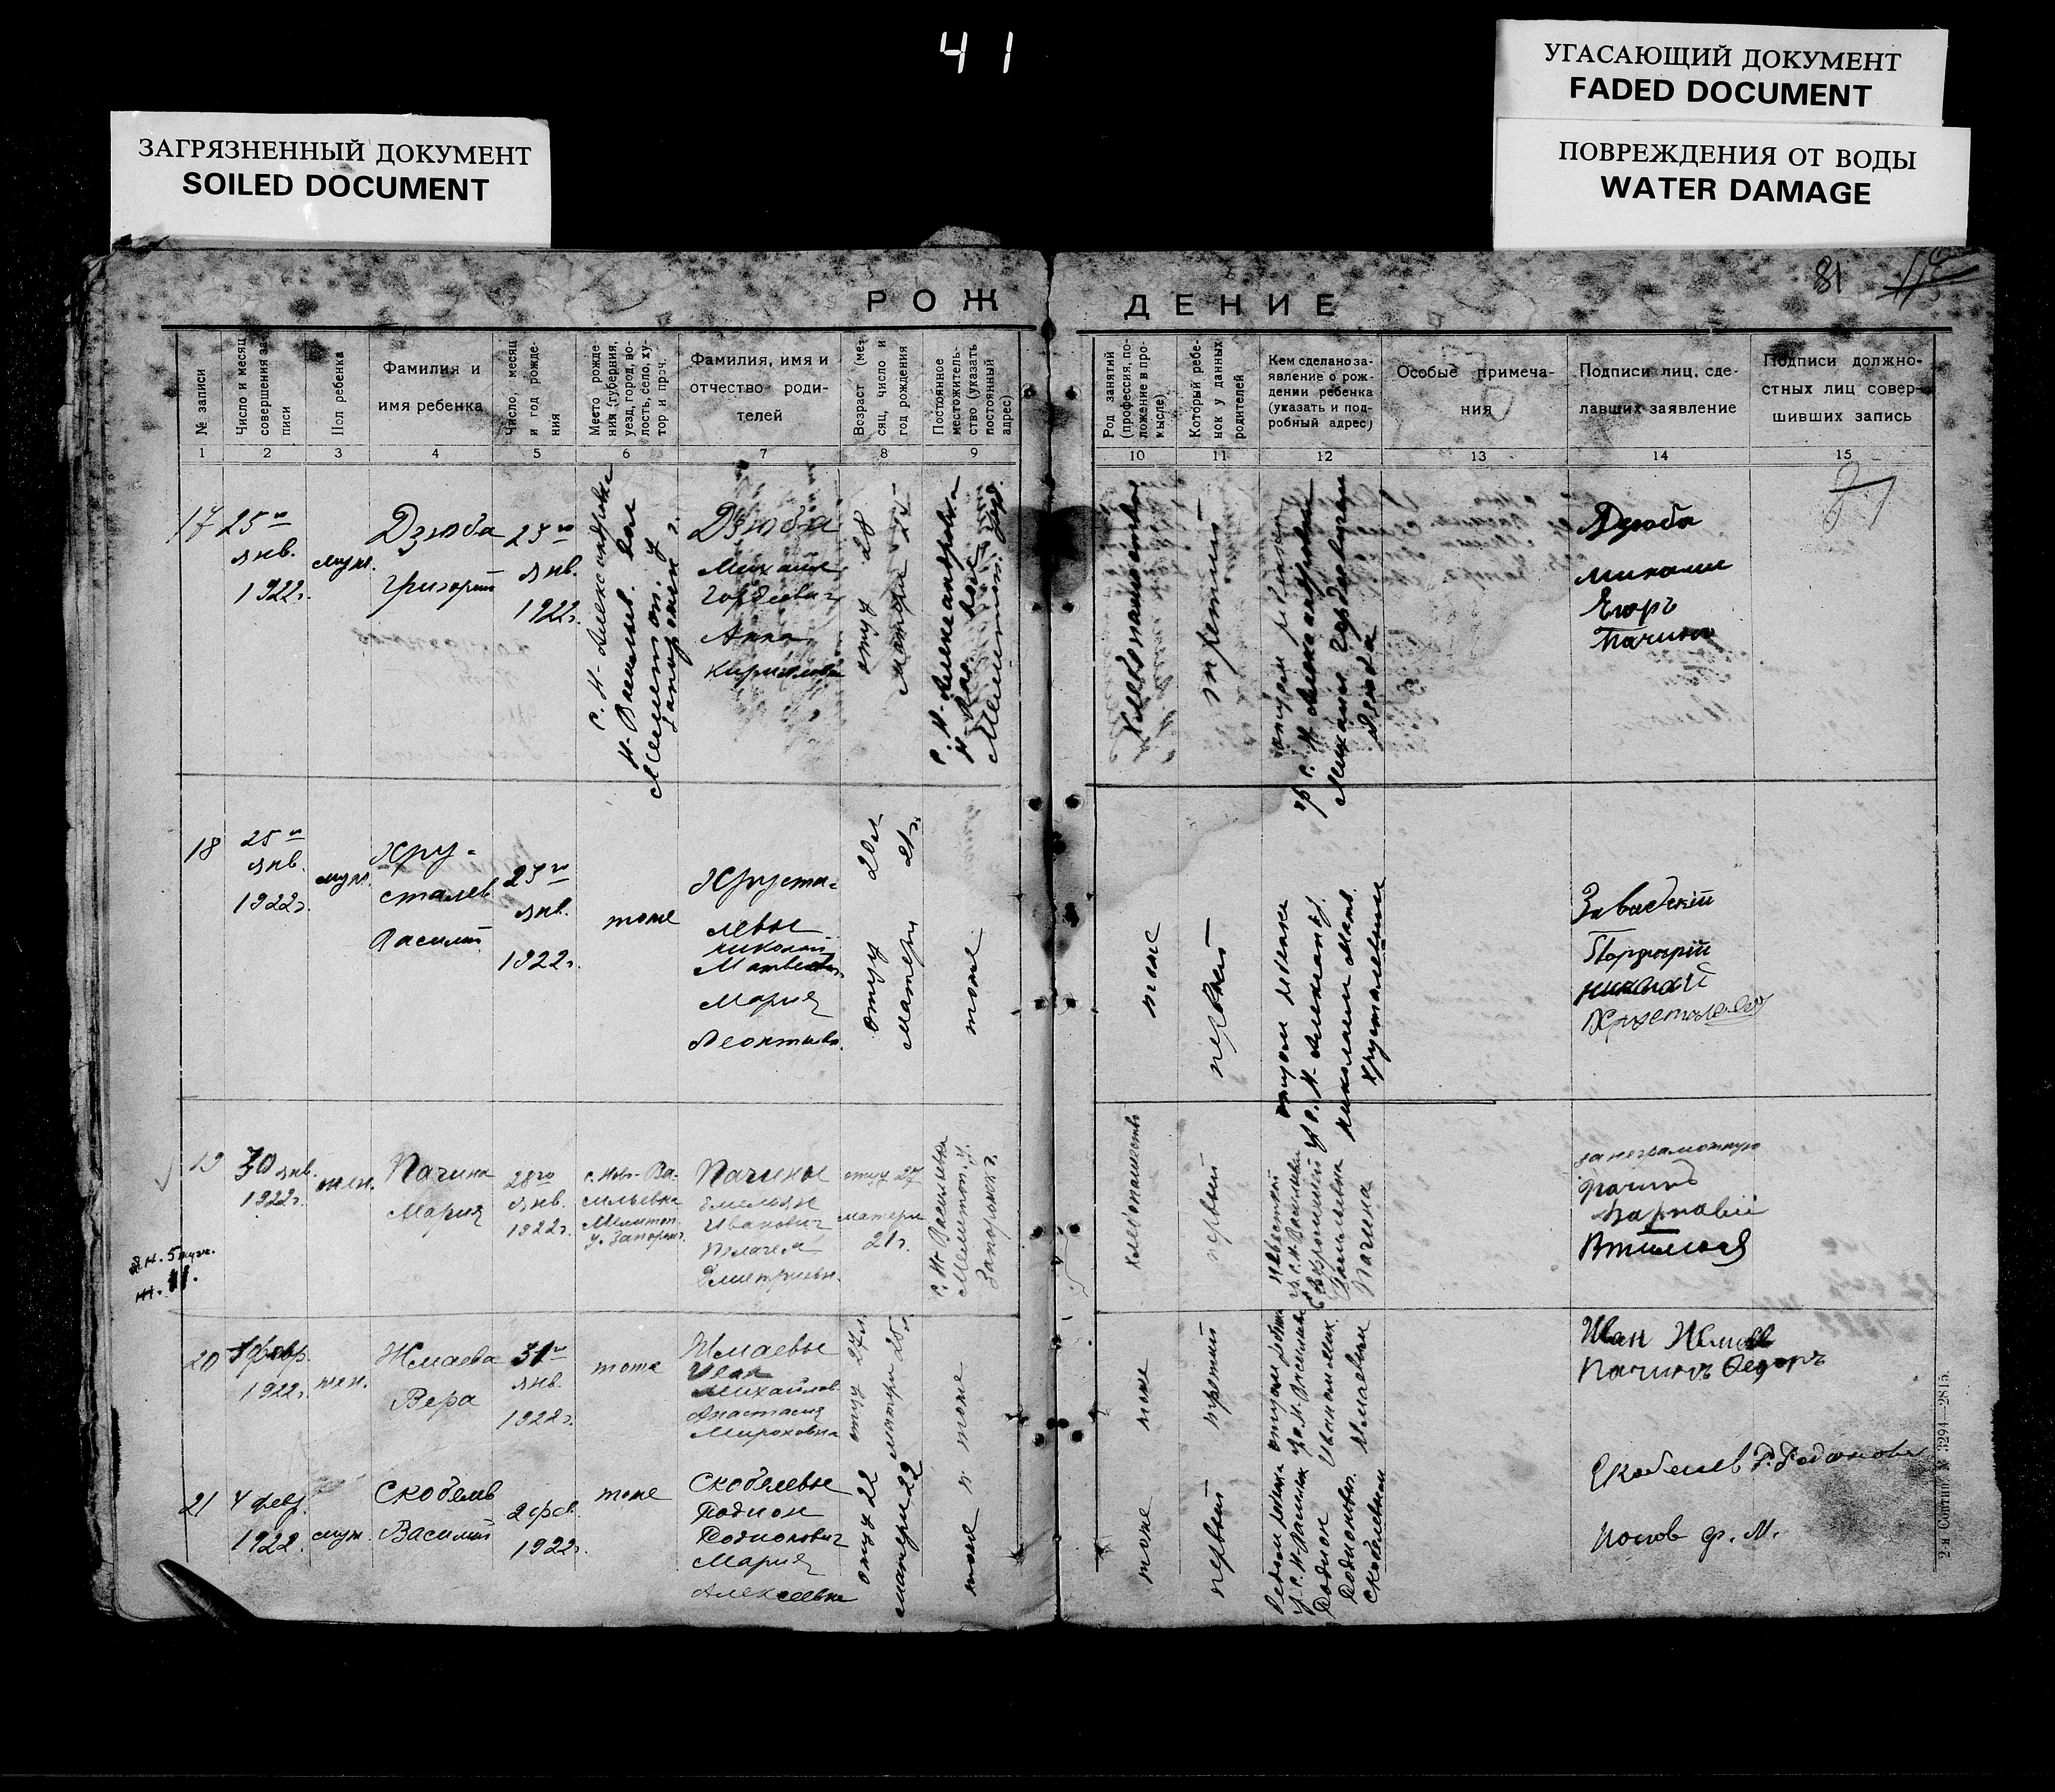 41
УГАСАЮЩИЙ ДОКУМЕНТ
FADED DOCUMENT
ЗАГРЯЗНЕННЫЙ ДОКУМЕНТ
SOILED DOCUMENT
ПОВРЕЖДЕНИЯ ОТ ВОДЫ
WATER DAMAGE
81
РОЖДЕНИЕ
№ записи
Число и месяц
совершения за-
писи
Пол ребенка
Фамилия и
имя ребенка
Число, месяц
и год рожде-
ния
Место рожде-
ния (губерния,
уезд, город, во-
лость, село, ху-
тор и проч.
Фамилия, имя и
отчество роди-
телей
Возраст (ме-
сяц, число и
год рождения
Постоянное
местожитель-
ство (указать
постоянный
адрес)
Род занятий
(профессия, по-
ложение в про-
мысле)
Который ребе-
нок у данных
родителей
Кем сделано за-
явление о рож-
дении ребенка
(указать и под-
робный адрес)
Особые примеча-
ния
Подписи лиц, сде-
лавших заявление
Подписи должно-
стных лиц совер-
шивших запись
1 2 3 4 5 6 7 8 9 10 11 12 13 14 15
17
25го
янв.
1922г.
муж.
Дзюба
Григорий
23го
янв.
1922г.
с. Н-Александровка
Н-Васильев. вол
Мелитоп. у
Запорожск г.
Дзюба
Михаил
Гордеевич
Анна
Кирилловна
отцу 28
матери
с. Н-Александровка
Н-Вас.
Хлебопашество
третий
с. Н-Александровки
Михаилом Гордеевичем
Дзюба
Дзюба
Михаил
Егоръ
Пачинъ
18
25го
янв.
1922г.
муж.
Хру-
сталев
Василий
23го
янв.
1922г.
тоже
Хруста-
левы
Николай
Матвеевич
Мария
Леонтьевн.
отцу 20л
матери 21г.
тоже
тоже
первый
отцом
гр с. Н-Александ.
Николаем Матв.
Хрусталевым
Завадский
Порфирій
Николай
Хрусталев
19
30 янв.
1922г.
жен.
Пачина
Мария
28го
янв.
1922г.
с. Ново-Ва-
сильевка
Мелитоп.
у. Запорож г.
Пачины
Емельян
Иванович
Пелагея
Дмитриевн.
отцу 27
матери
21г.
с. Н Васильевка
Мелитоп. у.
Запорожск г.
Хлебопашество
первый
Пачина
за неграмотную
Пачинъ
20
1 февр.
1922г.
жен.
Жмаева
Вера
31го
янв.
1922г.
тоже
Жмаевы
Иван
Михайлов.
Анастасия
Мироновна
отцу 27л.
матери 25л
тоже
тоже
третий
Жмаевым
Иван Жмаев
Пачинъ Федоръ
21
4 февр.
1922.
муж.
Скобелев
Василий
2 фев.
1922г.
тоже
Скобелевы
Родион
Родионович
Мария
Алексеевна
отцу 22
матери 22
тоже
тоже
первый
Родион
Родионович
Скобелевым
Скобелев Р. Родионович
Попов Ф. М.
2-я Сотип № 3294—2815.